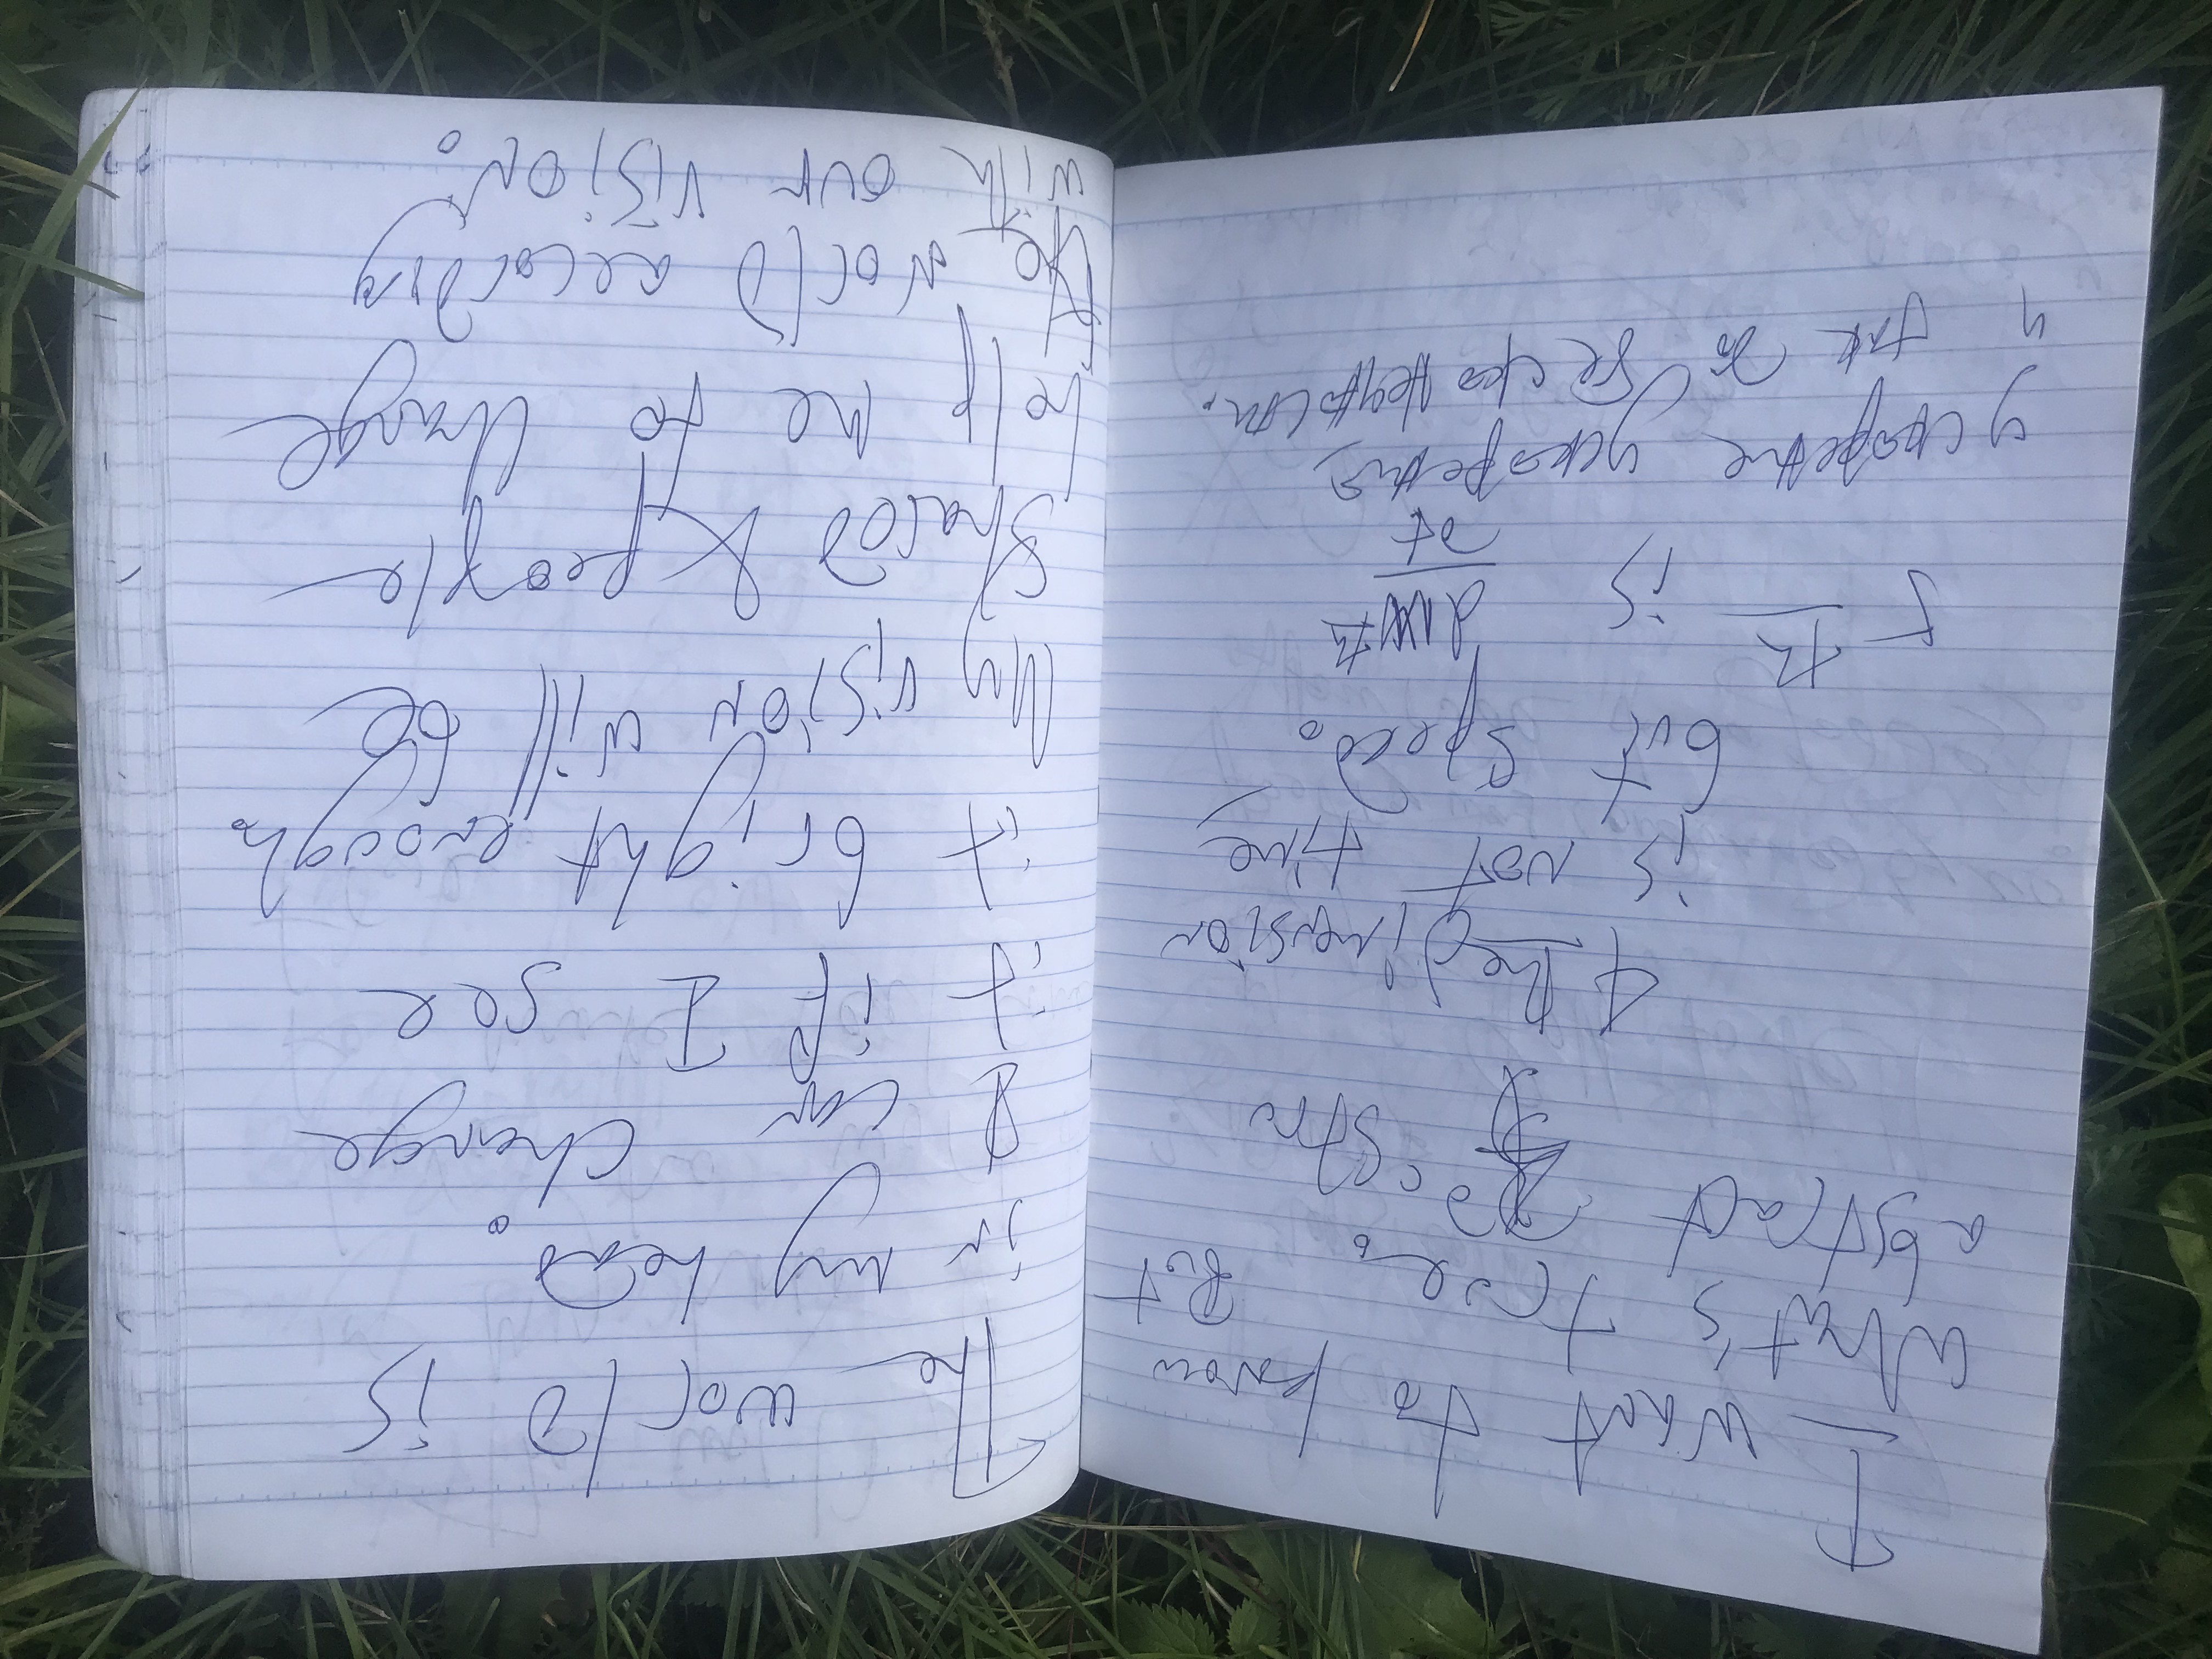 I want to know
what's true. But
abstract
4 the dimension
is not time,
but speed.
5 th is
dt
ускорение ускорения,
и так до
The world is
in my head.
I can change
it if I see
it bright enough.
My vision will be
Shared & people
help me to change
the world according
with our vision.